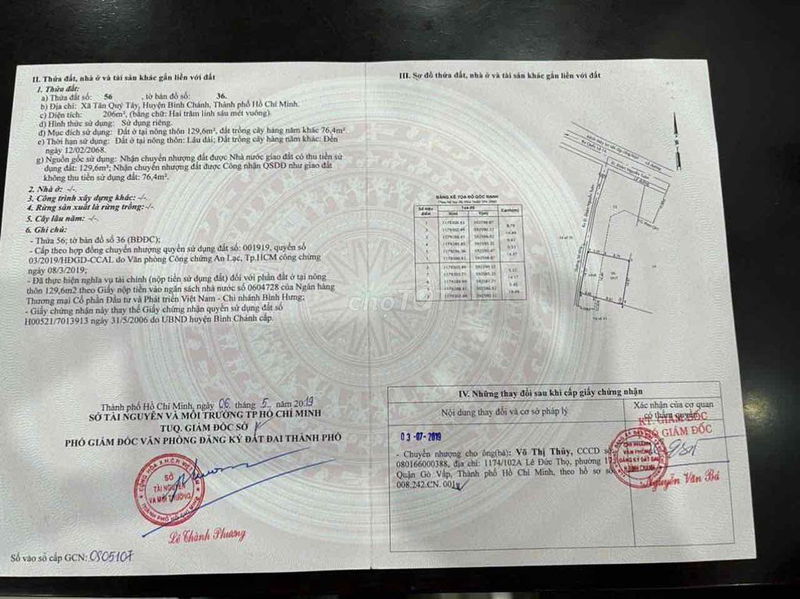 II. Thửa đất, nhà ở và tài sản khác gắn liền với đất
1. Thửa đất:
a) Thửa đất số: 56 , tờ bản đồ số: 36.
b) Địa chỉ: Xã Tân Quý Tây, Huyện Bình Chánh, Thành phố Hồ Chí Minh.
c) Diện tích: 206m², (bằng chữ: Hai trăm linh sáu mét vuông)
d) Hình thức sử dụng: Sử dụng riêng.
đ) Mục đích sử dụng: Đất ở tại nông thôn 129,6m², đất trồng cây hàng năm khác 76,4m².
e) Thời hạn sử dụng: Đất ở tại nông thôn: Lâu dài; Đất trồng cây hàng năm khác: Đến
ngày 12/02/2068.
g) Nguồn gốc sử dụng: Nhận chuyển nhượng đất được Nhà nước giao đất có thu tiền sử
dụng đất: 129,6m²; Nhận chuyển nhượng đất được Công nhận QSDĐ như giao đất
không thu tiền sử dụng đất: 76,4m².
2. Nhà ở: -/-.
3. Công trình xây dựng khác: -/-.
4. Rừng sản xuất là rừng trồng:-/-.
5. Cây lâu năm: -/-.
6. Ghi chú:
- Thửa 56; tờ bản đồ số 36 (BĐĐC);
- Cấp theo hợp đồng chuyển nhượng quyền sử dụng đất số: 001919, quyển số
03/2019/HĐGD-CCAL do Văn phòng Công chứng An Lạc, Tp.HCM công chứng
ngày 08/3/2019;
- Đã thực hiện nghĩa vụ tài chính (nộp tiền sử dụng đất) đối với phần đất ở tại nông
thôn 129,6m2 theo Giấy nộp tiền vào ngân sách nhà nước số 0604728 của Ngân hàng
Thương mại Cổ phần Đầu tư và Phát triển Việt Nam - Chi nhánh Bình Hưng;
- Giấy chứng nhận này thay thế Giấy chứng nhận quyền sử dụng đất số
H00521/7013913 ngày 31/5/2006 do UBND huyện Bình Chánh cấp.
Thành phố Hồ Chí Minh, ngày 06 tháng 5 năm 2019
SỞ TÀI NGUYÊN VÀ MÔI TRƯỜNG TP HỒ CHÍ MINH
TUQ. GIÁM ĐỐC SỞ
PHÓ GIÁM ĐỐC VĂN PHÒNG ĐĂNG KÝ ĐẤT ĐAI THÀNH PHỐ
SỞ
TÀI NGUYÊN
VÀ MÔI TRƯỜNG
Lê Thành Phương
Số vào sổ cấp GCN: 0805107
III. Sơ đồ thửa đất, nhà ở và tài sản khác gắn liền với đất
BẢNG KÊ TỌA ĐỘ GÓC RANH
chợ
IV. Những thay đổi sau khi cấp giấy chứng nhận
Nội dung thay đổi và cơ sở pháp lý
Xác nhận của cơ quan
có thẩm quyền
03-07-2019
KT. GIÁM ĐỐC
PHÓ GIÁM ĐỐC
- Chuyển nhượng cho ông(bà): Võ Thị Thủy, CCCD số
080166000388, địa chỉ: 1174/102A Lê Đức Thọ, phường
Quận Gò Vấp, Thành phố Hồ Chí Minh, theo hồ sơ số
008.242.CN.001
CHI NHÁNH
VĂN PHÒNG
ĐĂNG KÝ ĐẤT ĐAI
Nguyễn Văn Bá